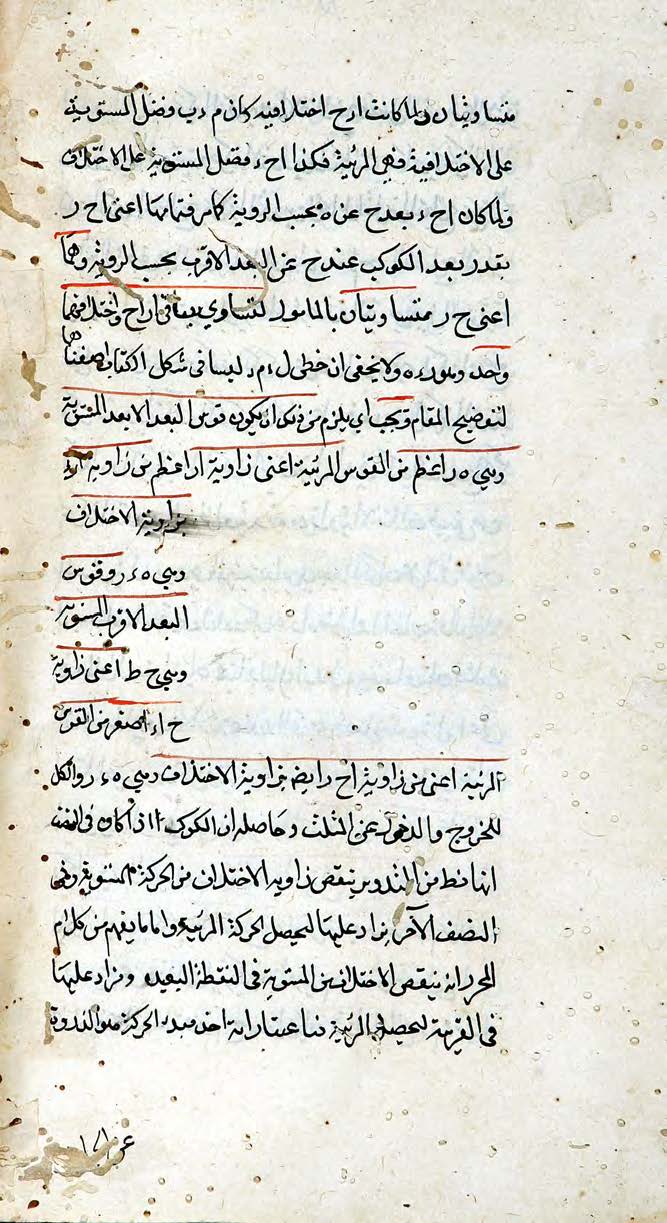 متساويتان ولما كانت ا ر ح اختلافية كان م د ب وفضل المستوية
على الاختلافية فهي المرئية فكذا ا ح ء فضل المستوية على الاختلاف
ولما كان ا ح ء بعد ح عن ه بحسب الروية كما عرفتهما اعنى ا ح ر
بقدر بعد الكوكب عند ح عن البعد الاقرب بحسب الروية وهما
اعنى ح ر متساويتان بالمامور لتساوي في ا ر ا ح واختلافهما
واحد وهو د ه ولا يخفى ان خطى ل ء م د ليسا في شكل الكتاب اضفناهما
لتوضيح المقام ويجب اي يلزم من ذلك ان يكون قوس البعد الابعد المستوية
وهي ه ر اعظم من القوس المرئية اعنى زاوية ا ر اعظم من زاوية
بزاوية الاختلاف
وهي ه ء ر وقوس
البعد الاقرب المستوية
وهي ح ط اعنى زاوية
ح ا ء اصغر من القوس
المرئية اعنى من زاوية ا ح ر ايضا بزاوية الاختلاف وهي ه ء ر والكل
للخروج والدخول عن المثلث وحاصله ان الكوكب اذا كان في النصف
الهابط من التدوير ينقص زاوية الاختلاف من الحركة المستوية وفي
النصف الآخر يزاد عليها ليحصل الحركة المرئية واما ما يفهم من كلام
المحرر انه ينقص الاختلاف من المستوية في النقطة البعيدة ويزاد عليها
في القريبة ليحصل المرئية فباعتبار انه اخذ مبدء الحركة من الذروة